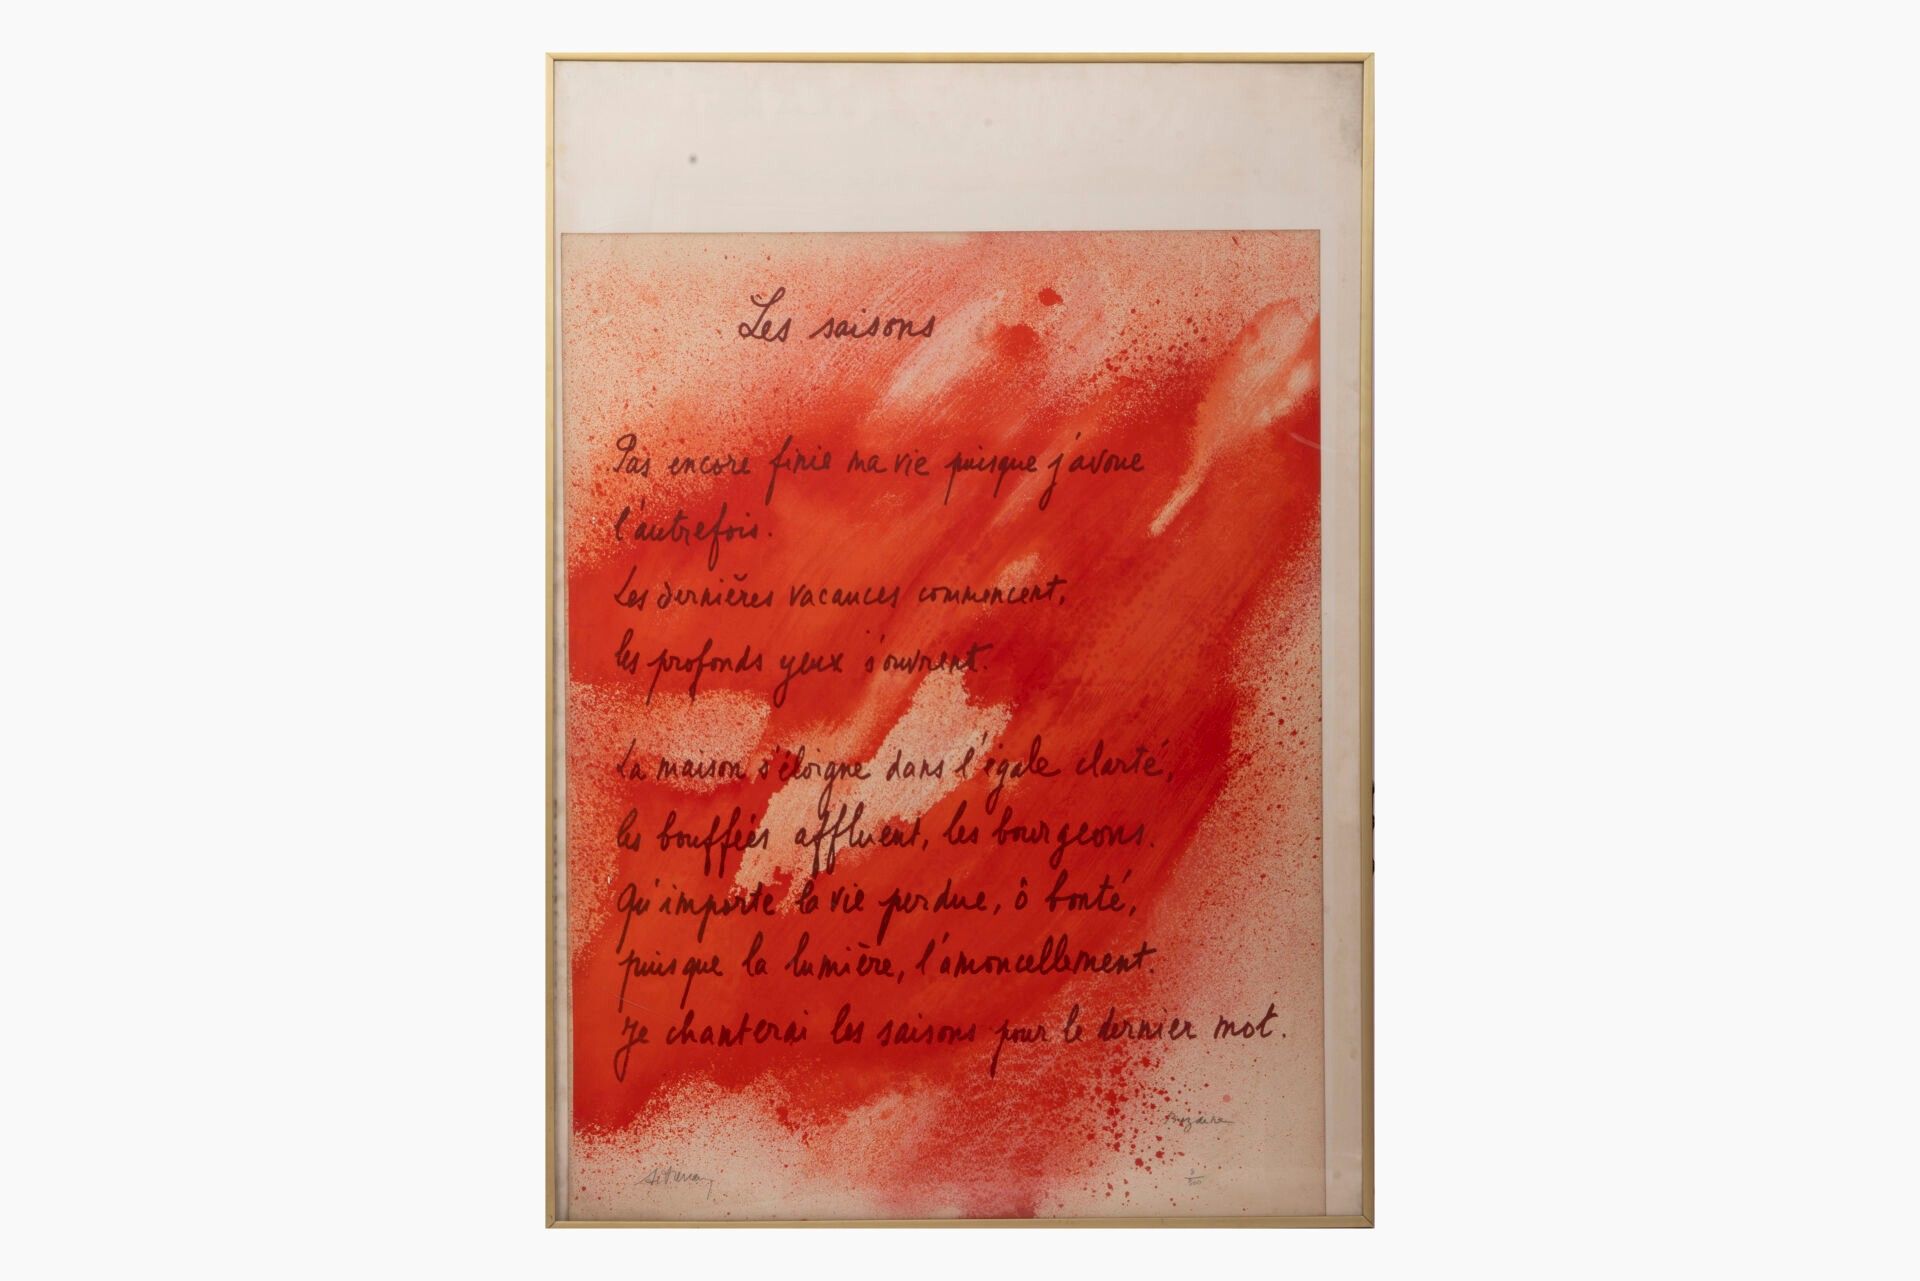 Les saisons
Pas encore finie ma vie puisque j'avoue
l'autrefois.
Les dernières vacances commencent,
les profonds yeux s'ouvrent.
La maison s'éloigne dans l'égale clarté,
les bouffées affluent, les bourgeons.
Qu'importe la vie perdue, ô bonté,
puisque la lumière, l'amoncellement.
Je chanterai les saisons pour le dernier mot.